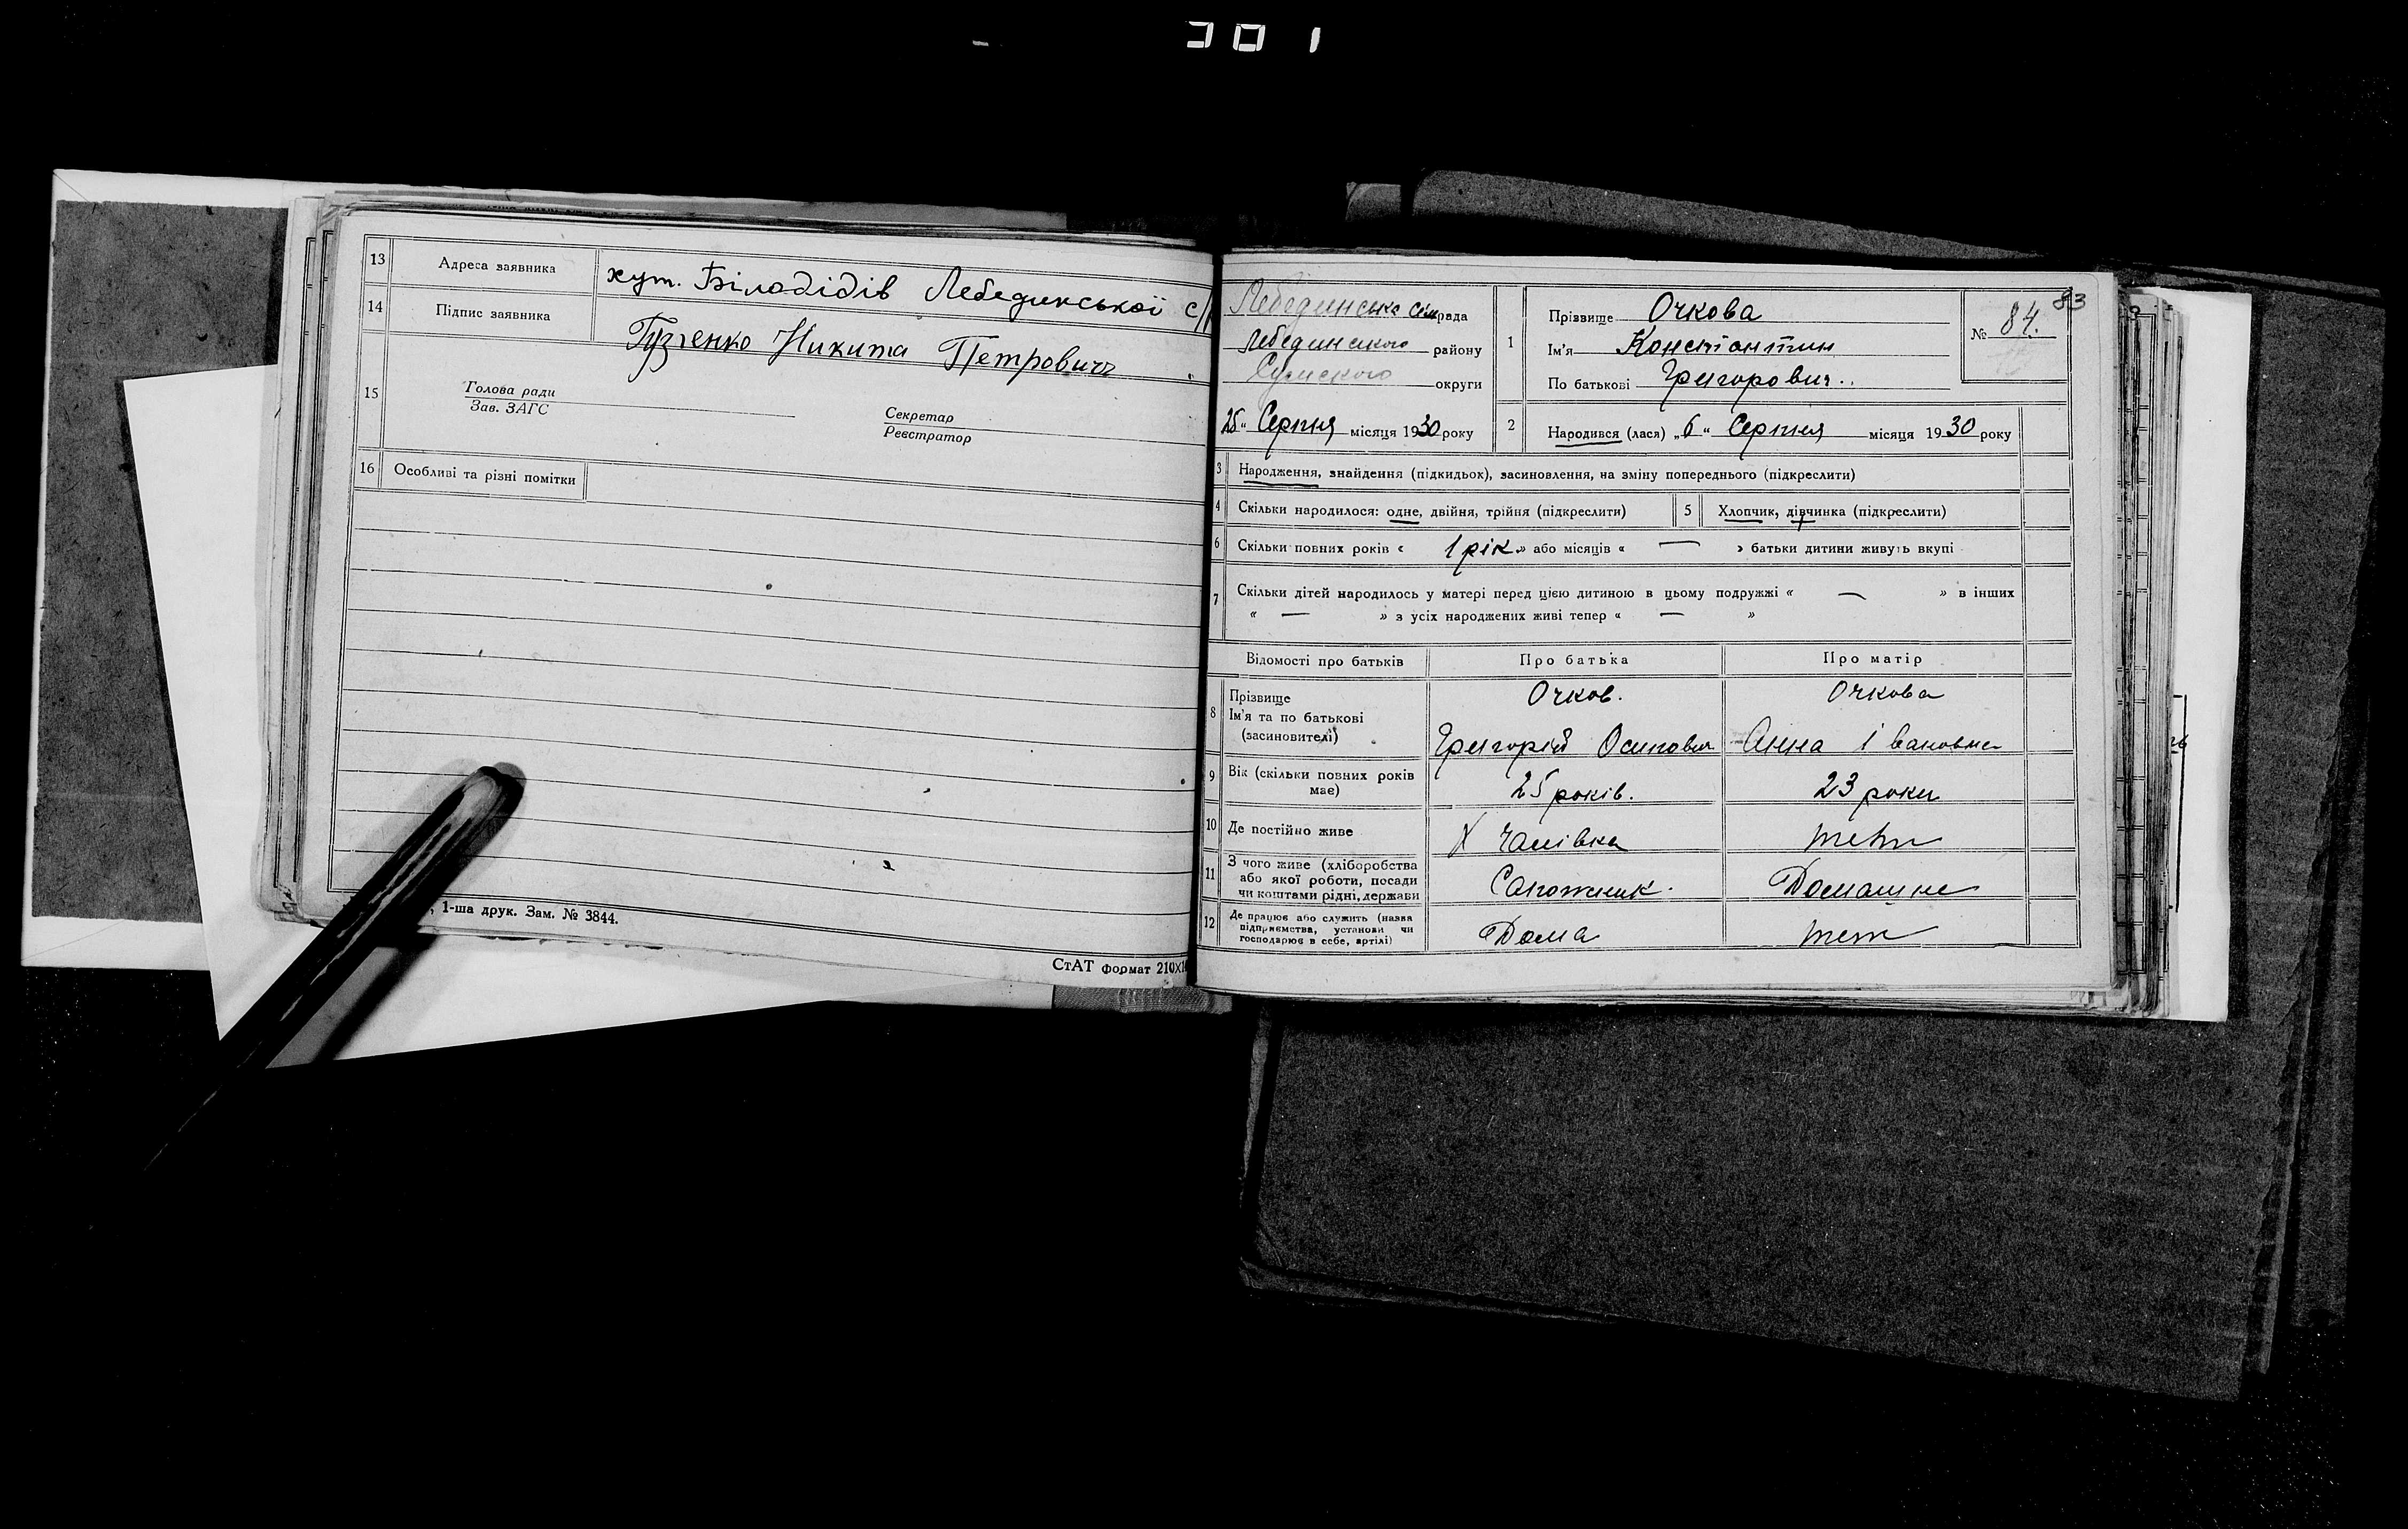 301
13 Адреса заявника хут. Білодідів Лебединської с/р
14 Підпис заявника
Гузченко Никита Петрович
15 Голова ради
Зав. ЗАГС
Секретар
Реєстратор
16 Особливі та різні помітки
, 1-ша друк. Зам. № 3844.
СтАТ формат 210×1
83
Лебединська сільрада
Лебединського району
Сумского округи
25" Серпня місяця 1930 року
1 Прізвище Очкова
Ім'я Константин
По батькові Григорович.
№ 84.
2 Народився (лася) „6" Серпня місяця 1930 року
3 Народження, знайдення (підкидьох), засиновлення, на зміну попереднього (підкреслити)
4 Скільки народилося: одне, двійня, трійня (підкреслити) 5 Хлопчик, дівчинка (підкреслити)
6 Скільки повних років « 1 рік » або місяців « — » батьки дитини живуть вкупі
7 Скільки дітей народилось у матері перед цією дитиною в цьому подружжі « — » в інших
« — » з усіх народжених живі тепер « — »
Відомості про батьків Про батька Про матір
8 Прізвище Очков. Очкова
Ім'я та по батькові
(засиновителі) Григорій Осипович Анна Івановна
9 Вік (скільки повних років має) 25 років. 23 роки
10 Де постійно живе Х
11 З чого живе (хліборобства або якої роботи, посади чи коштами рідні, держави Сапожник. Домашне
12 Де працює або служить (назва підприємства, установи чи господарює в себе, артілі) Дома